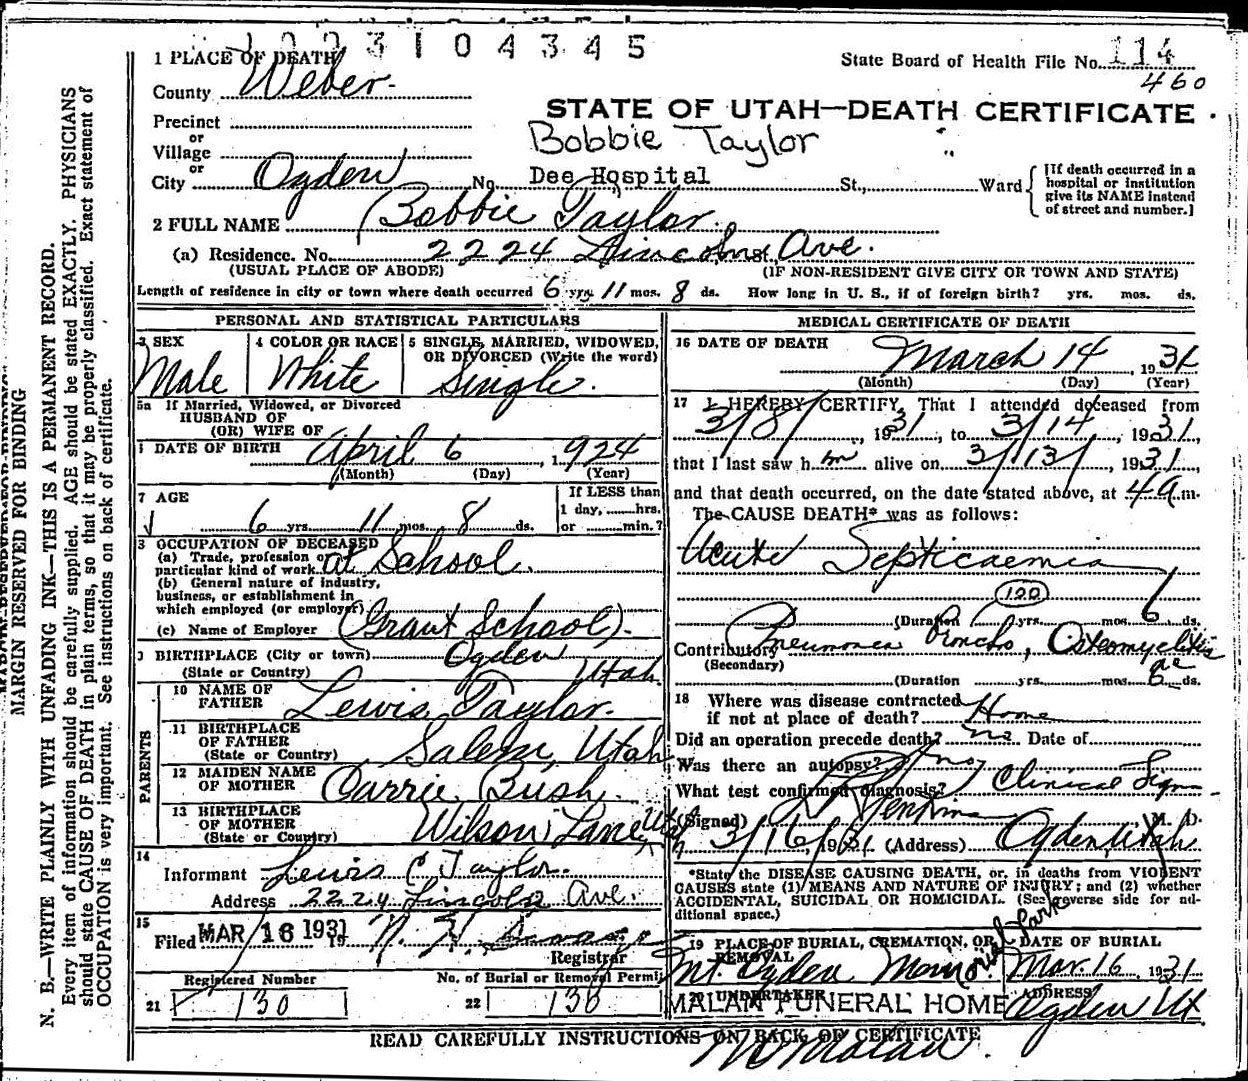 3 1 0 4 3 4 5
1 PLACE OF DEATH
State Board of Health File No. 114
460
County Weber.
STATE OF UTAH—DEATH CERTIFICATE
Precinct
or
Bobbie Taylor
Village
or
City Ogden No. Dee Hospital St., Ward
[If death occurred in a hospital or institution give its NAME instead of street and number.]
2 FULL NAME Bobbie Taylor.
(a) Residence. No. 2224 Lincoln St. Ave.
(USUAL PLACE OF ABODE) (IF NON-RESIDENT GIVE CITY OR TOWN AND STATE)
Length of residence in city or town where death occurred 6 yrs. 11 mos. 8 ds. How long in U. S., if of foreign birth? yrs. mos. ds.
PERSONAL AND STATISTICAL PARTICULARS
3 SEX Male
4 COLOR OR RACE White
5 SINGLE, MARRIED, WIDOWED, OR DIVORCED (Write the word) Single.
5a If Married, Widowed, or Divorced
HUSBAND OF
(OR) WIFE OF
DATE OF BIRTH April 6, 1924
(Month) (Day) (Year)
7 AGE
6 yrs. 11 mos. 8 ds.
If LESS than
1 day, hrs.
or min.?
OCCUPATION OF DECEASED
(a) Trade, profession or
particular kind of work at School.
(b) General nature of industry,
business, or establishment in
which employed (or employer)
(c) Name of Employer (Grant School).
BIRTHPLACE (City or town) Ogden
(State or Country) Utah
PARENTS
10 NAME OF FATHER Lewis Taylor.
11 BIRTHPLACE OF FATHER (State or Country) Salem, Utah
12 MAIDEN NAME OF MOTHER Carrie Bush.
13 BIRTHPLACE OF MOTHER (State or Country) Wilson Lane, Utah
14
Informant Lewis C Taylor.
Address 2224 Lincoln Ave.
15
Filed MAR 16 1931 19
Registrar
Registered Number No. of Burial or Removal Permit
21 130 22 136
MEDICAL CERTIFICATE OF DEATH
16 DATE OF DEATH
March 14, 1931
(Month) (Day) (Year)
17 I HEREBY CERTIFY, That I attended deceased from
3/8/, 1931, to 3/14, 1931,
that I last saw him alive on 3/13/, 1931,
and that death occurred, on the date stated above, at 4 a.m.
The CAUSE DEATH* was as follows:
Acute Septicaemia
120
(Duration) yrs. mos. 6 ds.
Contributory Pneumonia Broncho, Osteomyelitis ac
(Secondary)
(Duration yrs. mos. 6 ds.
18 Where was disease contracted
if not at place of death? Home
Did an operation precede death? no Date of
Was there an autopsy? no
What test confirmed diagnosis? Clinical Sign
(Signed) Jenkins M. D.
3/16/, 1931 (Address) Ogden, Utah
*State the DISEASE CAUSING DEATH, or, in deaths from VIOLENT
CAUSES state (1) MEANS AND NATURE OF INJURY; and (2) whether
ACCIDENTAL, SUICIDAL OR HOMICIDAL. (See reverse side for ad-
ditional space.)
19 PLACE OF BURIAL, CREMATION, OR REMOVAL
Mt. Ogden Memorial Park
DATE OF BURIAL
Mar. 16, 1931
UNDERTAKER
MALAN FUNERAL HOME
ADDRESS
Ogden Ut
READ CAREFULLY INSTRUCTIONS ON BACK OF CERTIFICATE
Malan.
MARGIN RESERVED FOR BINDING
N. B.—WRITE PLAINLY WITH UNFADING INK—THIS IS A PERMANENT RECORD.
Every item of information should be carefully supplied. AGE should be stated EXACTLY. PHYSICIANS
should state CAUSE OF DEATH in plain terms, so that it may be properly classified. Exact statement of
OCCUPATION is very important. See instructions on back of certificate.